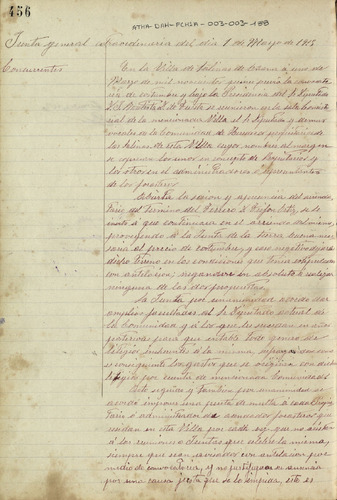 456
ATHA-DAH-FCHSA-003-003-188
Junta general extraordinaria del dia 1 de Mayo de 1913
Concurrentes
En la Villa de Salinas de Añana a uno de
Mayo de mil novecientos previa la convocatoria
de costumbre y bajo la Presidencia del Sr Diputado
se reunieron en la sala Consistorial
de la mencionada Villa el Sr Diputado y demas
vocales de la Comunidad de Herederos propietarios de
las Salinas de esta Villa cuyos nombres al margen
se expresan los unos en concepto de Propietarios y
los otros en el de administradores o Apoderados
de los forasteros
Abierta la sesion
invitó a que continuase en el arriendo del mismo
proponiendo a la Junta de la
al precio de costumbre, y caso negativo dejará
dicho terreno en las condiciones que tenia
con antelacion, negandose en absoluto a realizar
ninguna de las dos propuestas.
La Junta por unanimidad acordó dar
amplias facultades al Sr Diputado actual de
la Comunidad y a los que le sucedan en años
posteriores para que entable toda genero de
litigios inherentes a la misma
consiguiente los gastos que se originen con dichos
litigios por cuenta de mencionada Comunidad.
Acto seguido y tambien por unanimidad se
acordó imponer una peseta de multa a cada Propietario
o administrador de hacendados forasteros que
residan en esta Villa por cada vez que no asistan
a las reuniones o Juntas que celebre la misma,
siempre que sean avisados con antelacion por
medio de convocatoria, y no justifiquen su ausencia
por una causa justa que se lo impida, esto es